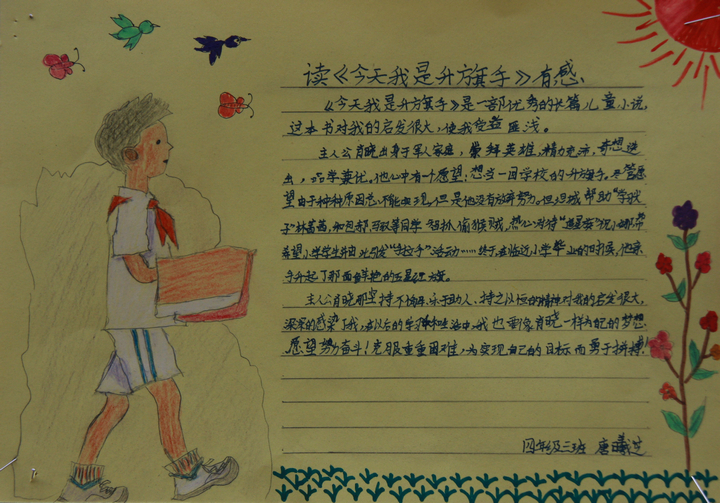 读《今天我是升旗手》有感
《今天我是升旗手》是一部优秀的长篇儿童小说,
这本书对我的启发很大,使我受益匪浅。
主人公肖晓出身于军人家庭,崇拜英雄,精力充沛,奇想迭
出,品学兼优。他心中有一个愿望:想当一回学校的升旗手。尽管愿
望由于种种原因老不能实现,但是他没有放弃努力,但坦诚帮助"学
子"林茜茜,和巴郎邹等同学智抓偷猴贼,热心对待
希望小学学生并由此引发"手拉手"活动……终于在临近小学毕业的时候,他亲
手升起了那面鲜艳的五星红旗。
主人公肖晓那坚持不懈,乐于助人,持之以恒的精神对我的启发很大,
深深的感染了我,在以后的学习和生活中,我也要像肖晓一样为自己的梦想
愿望努力奋斗!克服重重困难,为实现自己的目标而勇于拼搏!
四年级三班 唐曦